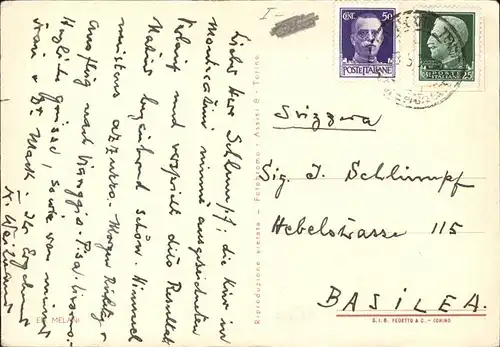 Lieber Herr Schlumpf! die Kur in
Montecatini nimmt ausgezeichneten
Verlauf und verspricht dies Resultat
Natur begeisternd schön. Himmel
meistens azzurro. Morgen Richtung
Ausflug nach Viareggio - Pisa, Livorno.
Herzliche Grüsse, sowie von meiner
Frau
Ihr Ergebener
ED. MELANI
Riproduzione vietata - Fotocromo - Assisi & - Torino
I-
CENT. 50
POSTE ITALIANE
POSTE ITALIANE
25
Svizzera
Sig. J. Schlumpf
Hebelstrasse 115
BASILEA.
S.I.B. FEDETTO & C. - TORINO